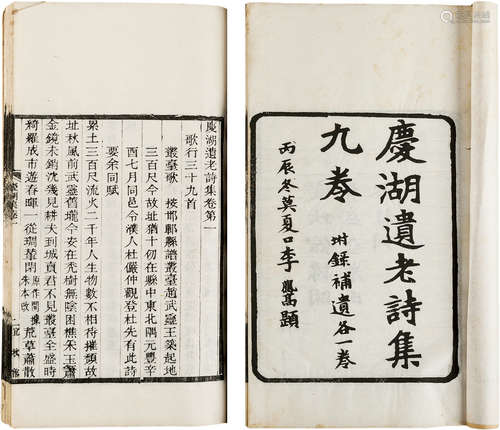 慶湖遺老詩集
九卷
坿錄補遺各一卷
丙辰冬莫夏口李鳳高題
慶湖遺老詩集卷第一
歌行三十九首
叢臺歌 按邯鄲縣叢臺趙武靈王築起地
三百尺今故址猶十仞在縣中東北隅元豐辛
酉七月同邑令濮人杜儼仲觀登杜先有此詩
要余同賦
累土三百尺流火二千年人生物數不相待摧頹故
址秋風前武靈舊壠今安在禿樹無陰困樵采玉簫
金鏡未銷沈幾見耕夫到城賣君不見叢臺全盛時
綺羅成市遊春暉一從琱輦閉原作開據朱本改荒草蕭散
宜秋館